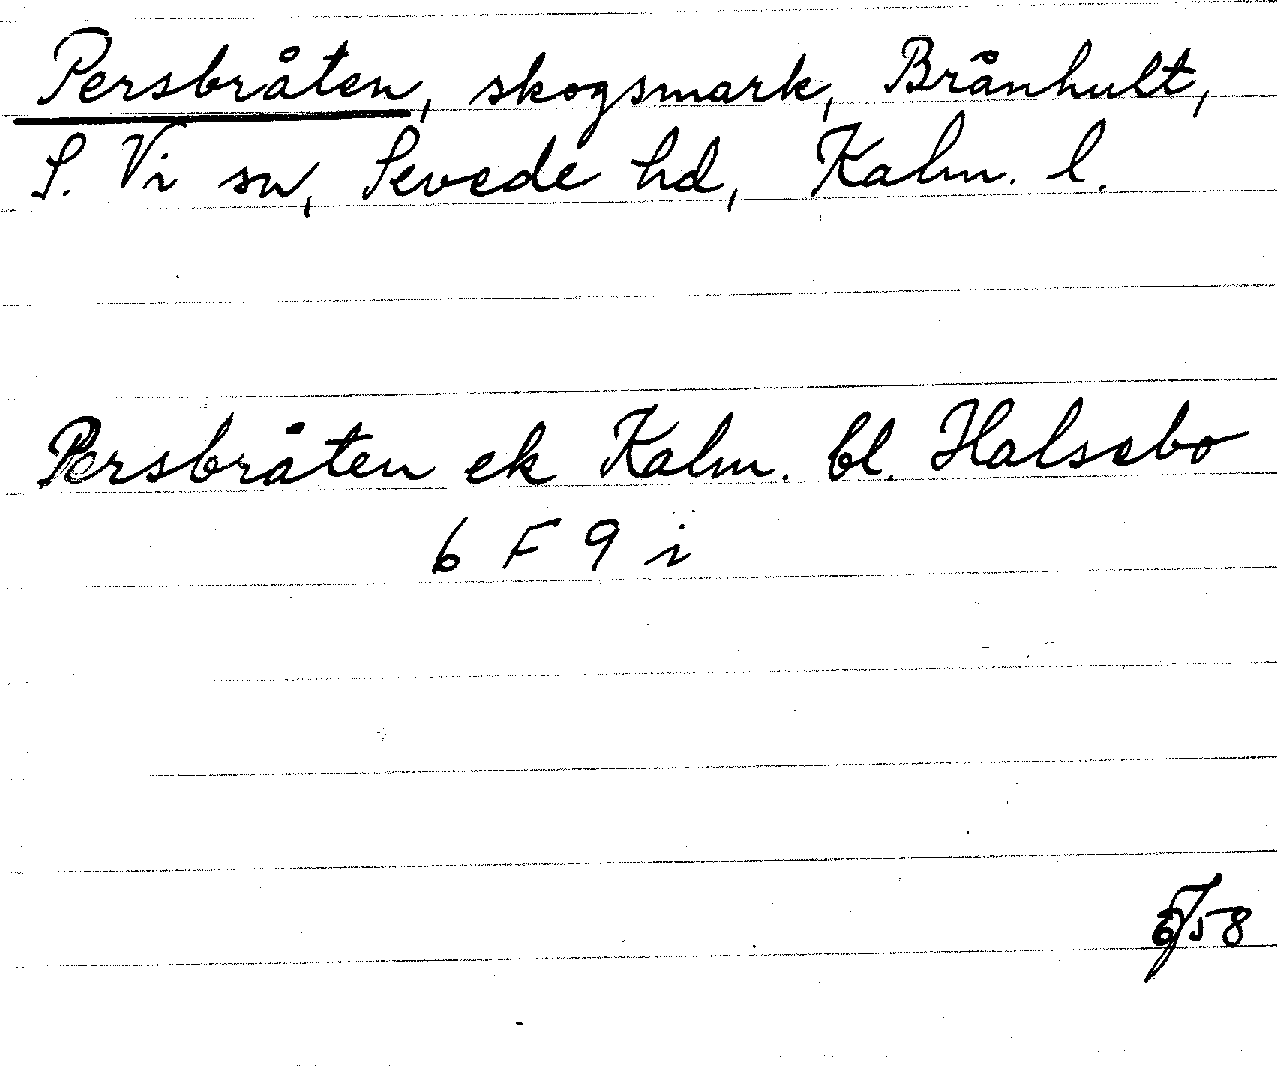 Persbråten, skogsmark, Brånhult,
S. Vi sn, Sevede hd, Kalm. l.
Persbråten ek Kalm. bl. Halsebo
6 F 9 i